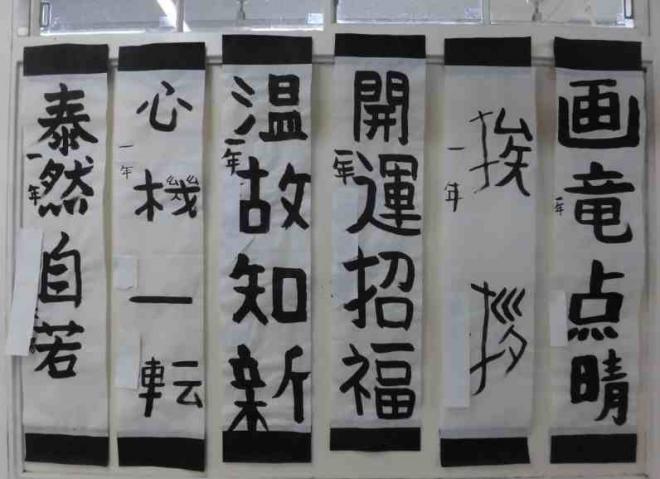 画竜点晴
一年
挨拶
一年
開運招福
一年
温故知新
一年
心機一転
一年
泰然自若
一年